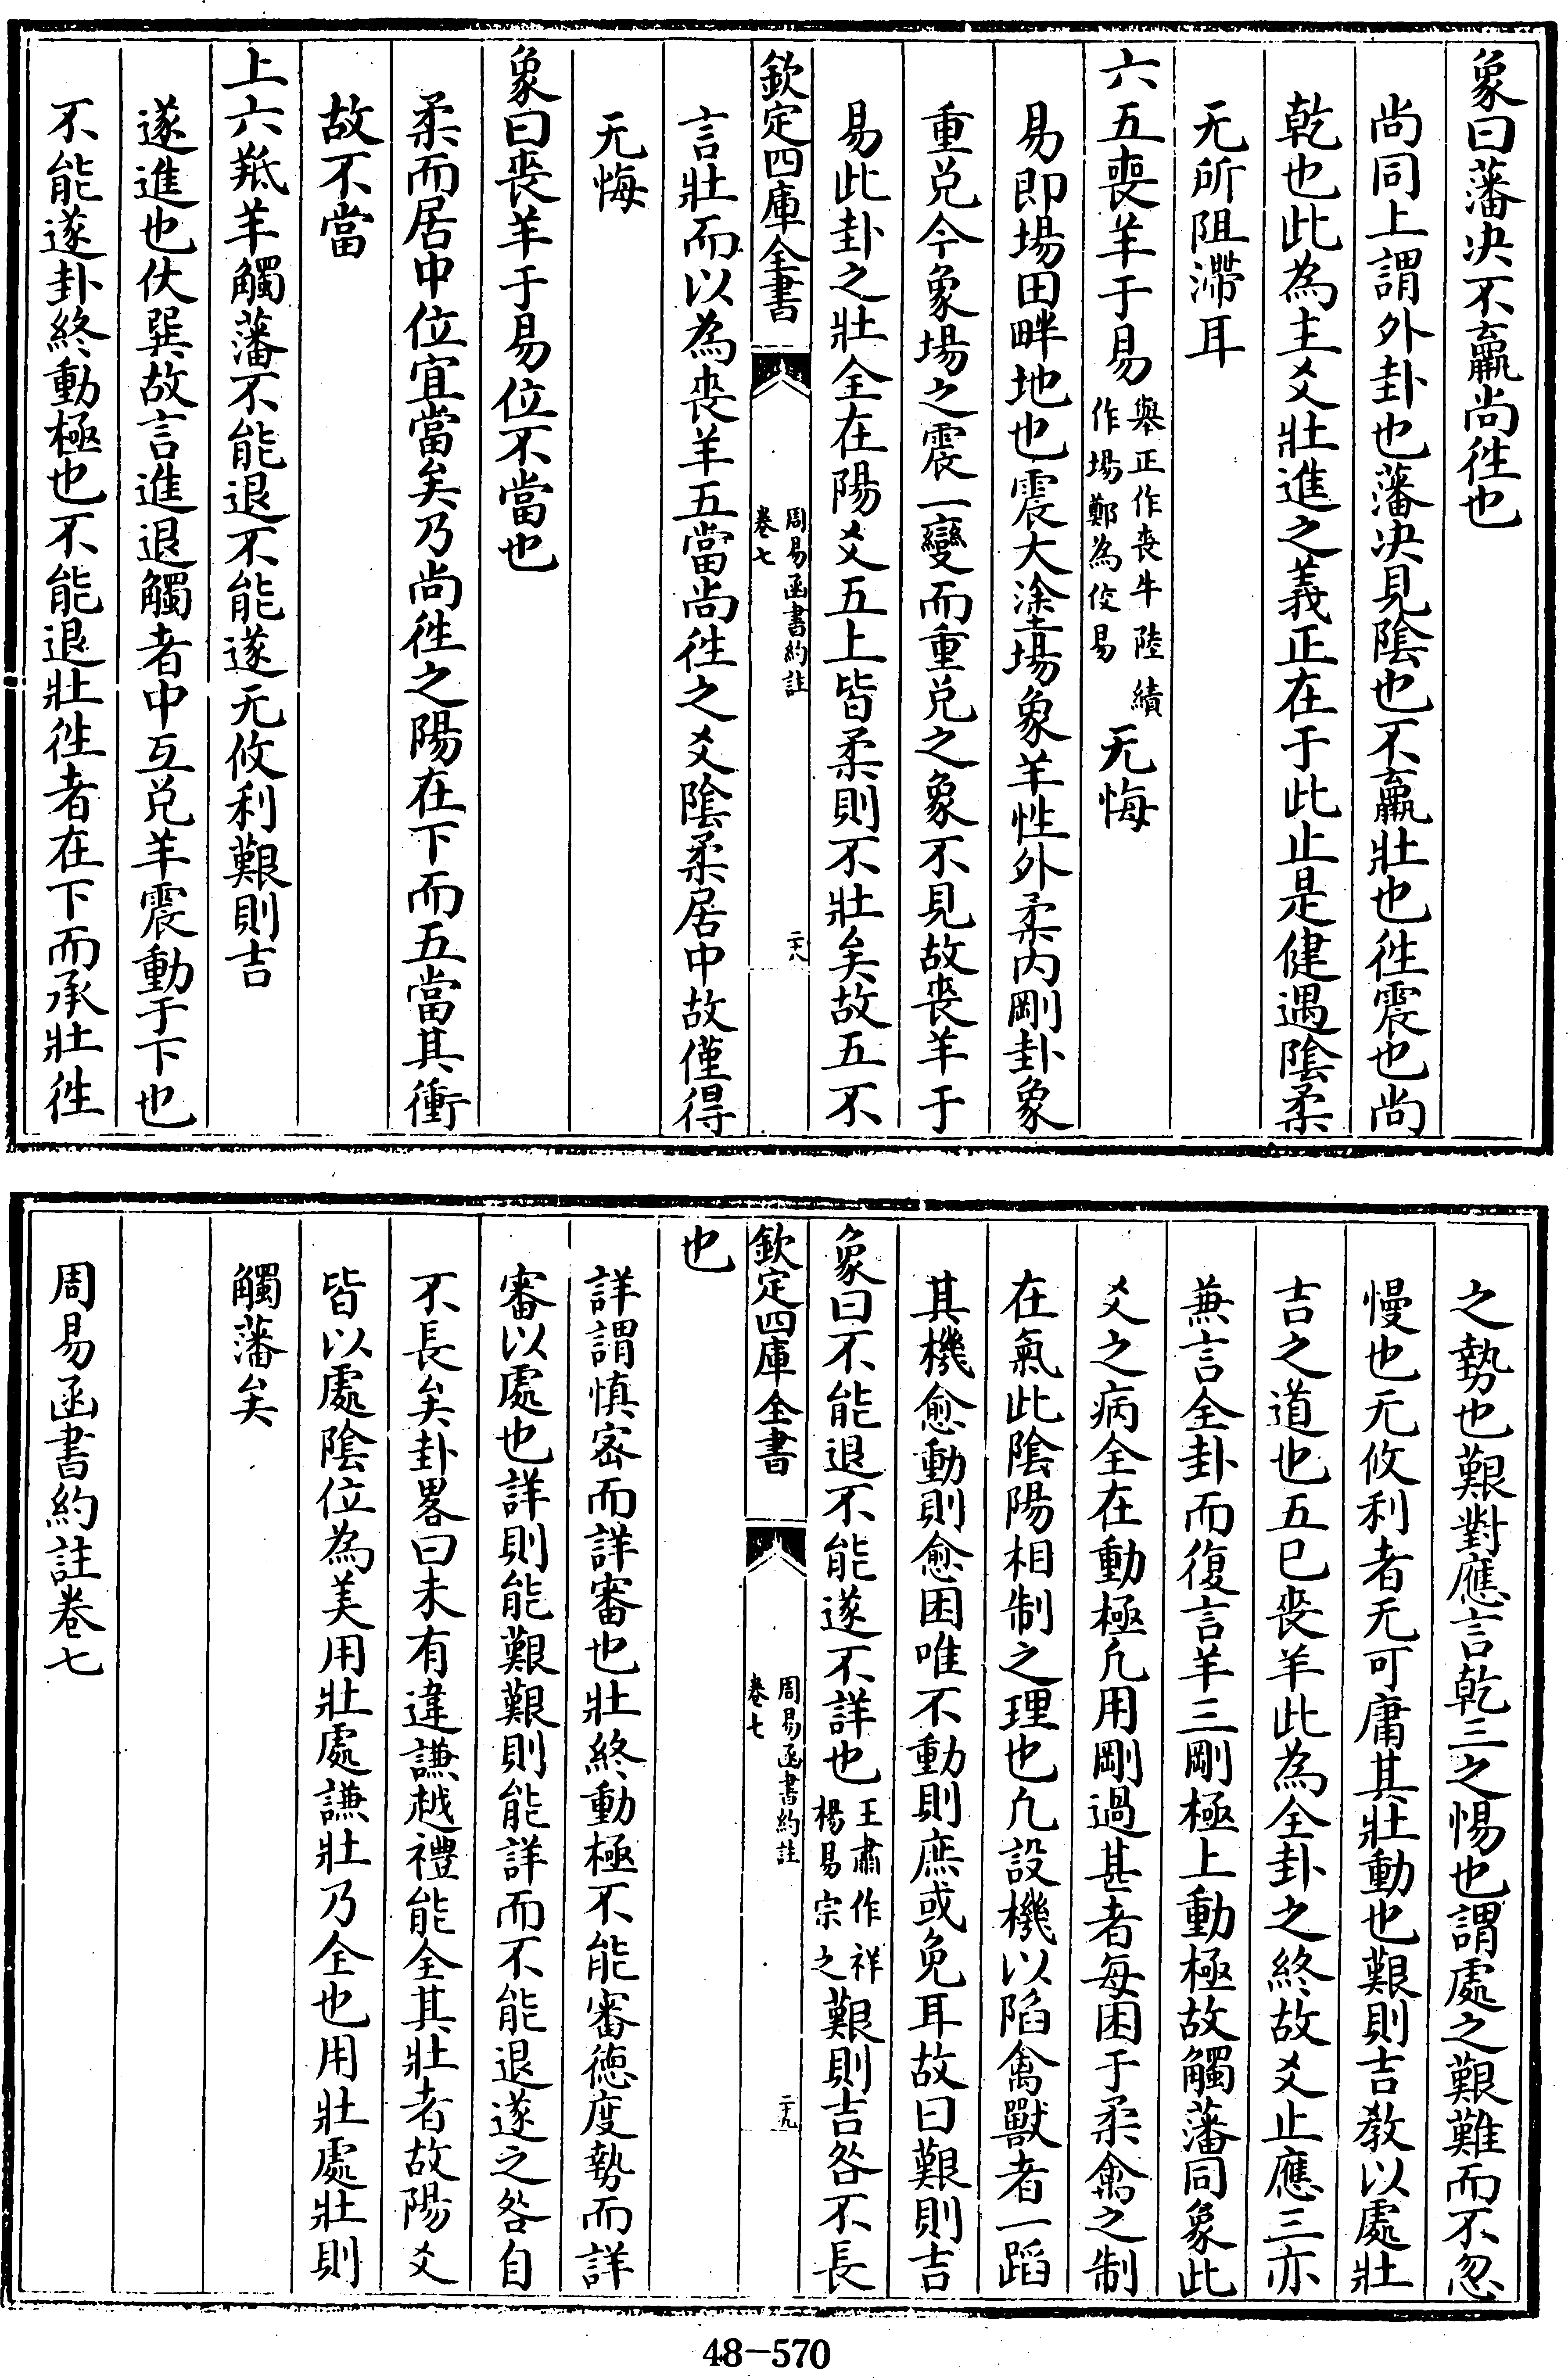 象曰藩决不羸尚徃也
尚同上謂外卦也藩决見陰也不羸壯也徃震也尚
乾也此為主爻壯進之義正在于此止是健遇陰柔
无所阻滯耳
六五喪羊于易
舉正作喪牛陸績
作場鄭為佼易
无悔
易即場田畔地也震大塗場象羊性外柔内剛卦象
重兑今象場之震一變而重兑之象不見故喪羊于
易此卦之壯全在陽爻五上皆柔則不壯矣故五不
欽定四庫全書
周易函書約註
卷七
二十八
言壯而以為喪羊五當尚徃之爻陰柔居中故僅得
无悔
象曰喪羊于易位不當也
柔而居中位宜當矣乃尚徃之陽在下而五當其衝
故不當
上六羝羊觸藩不能退不能遂无攸利艱則吉
遂進也伏巽故言進退觸者中互兑羊震動于下也
不能遂卦終動極也不能退壯徃者在下而承壯徃
之勢也艱對應言乾三之惕也謂處之艱難而不忽
慢也无攸利者无可庸其壯動也艱則吉教以處壯
吉之道也五已喪羊此為全卦之終故爻止應三亦
兼言全卦而復言羊三剛極上動極故觸藩同象此
爻之病全在動極凡用剛過甚者每困于柔禽之制
在氣此陰陽相制之理也凡設機以陷禽獸者一蹈
其機愈動則愈困唯不動則庶或免耳故曰艱則吉
象曰不能退不能遂不詳也
王肅作祥
楊易宗之
艱則吉咎不長
欽定四庫全書
周易函書約註
卷七
二十九
也
詳謂慎宻而詳審也壯終動極不能審德度勢而詳
審以處也詳則能艱艱則能詳而不能退遂之咎自
不長矣卦畧曰未有違謙越禮能全其壯者故陽爻
皆以處陰位為美用壯處謙壯乃全也用壯處壯則
觸藩矣
周易函書約註卷七
48-570